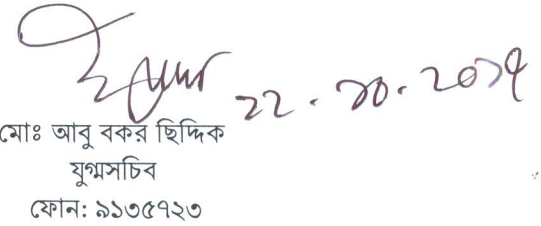 ২২.১০.২০১৭
মোঃ আবু বকর ছিদ্দিক
যুগ্মসচিব
ফোন: ৯১৩৫৭২৩